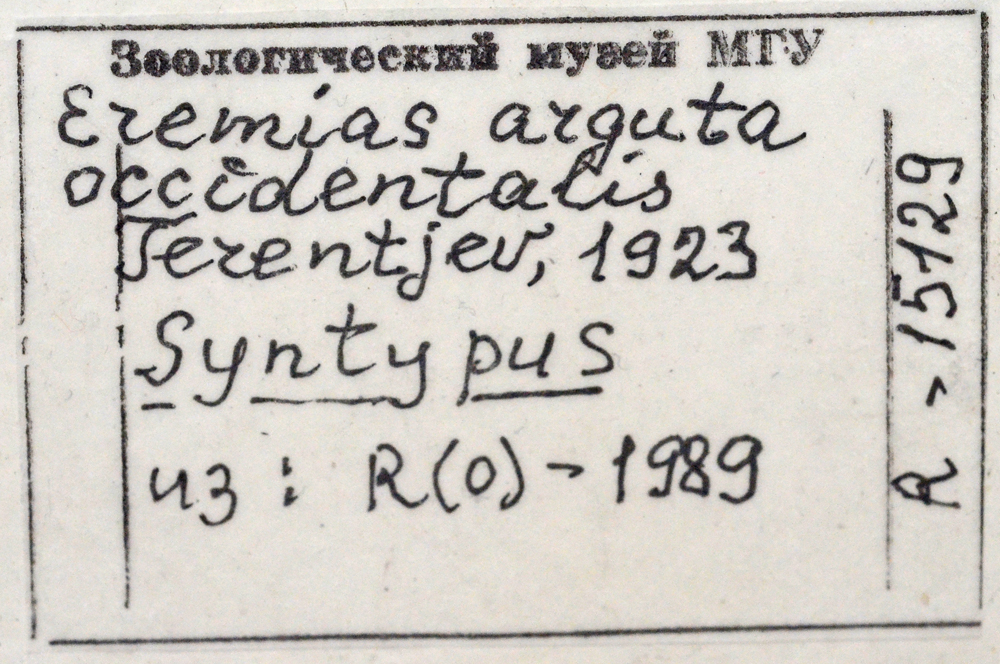 Зоологический музей МГУ
Eremias arguta
occidentalis
Terentjev, 1923
Syntypus
из: R(0)-1989
R-15129